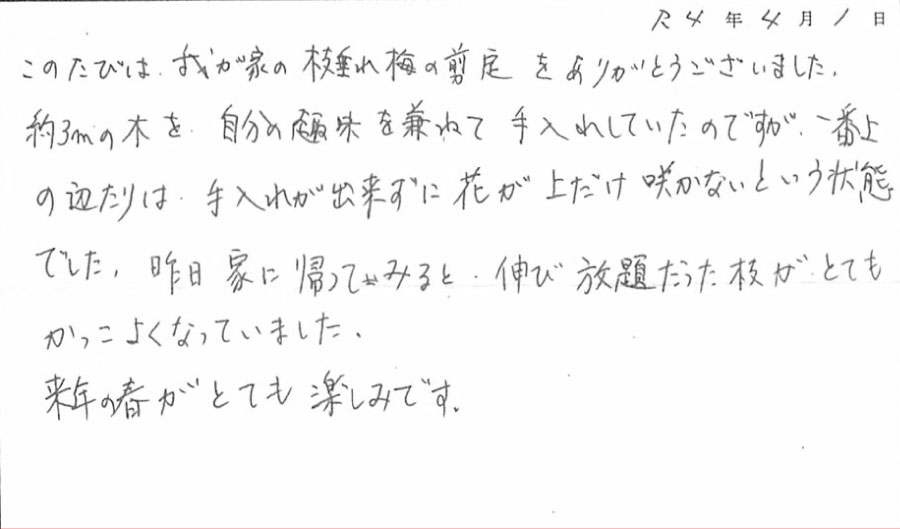 R4年4月1日
このたびは、我が家の枝垂れ梅の剪定をありがとうございました。
約3mの木を、自分の趣味を兼ねて手入れしていたのですが、一番上
の辺たりは、手入れが出来ずに花が上だけ咲かないという状態
でした。昨日家に帰ってみると、伸び放題だった枝がとても
かっこよくなっていました。
来年の春がとても楽しみです。